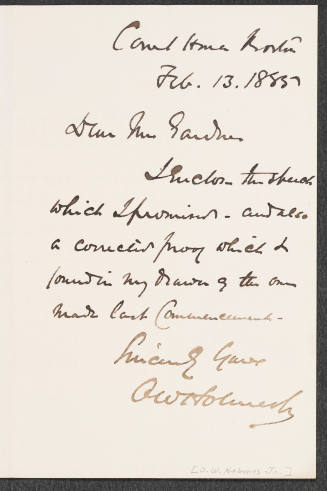 Court House Boston
Feb. 13. 1885
Dear Mrs Gardner
I enclose the speech
which I promised - and also
a corrected proof which I
found in my drawer of the one
made last Commencement -
Sincerely Yours
O W Holmes Jr
[O. W. Holmes Jr.]